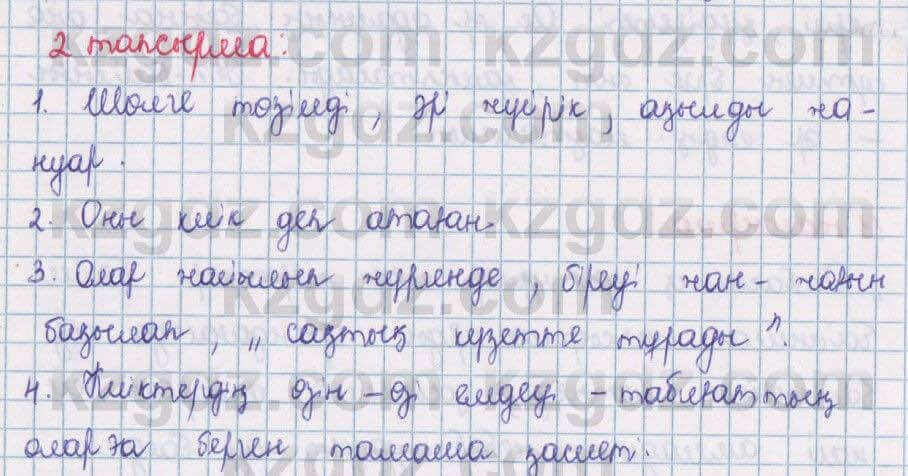 2 тапсырма:
1. Шөлге төзімді, әрі жүйрік, азулды жа-
нуар.
2. Оны киік деп атаған.
3. Олар жайылып жүргенде, біреуі жан-жағын
бақылап, „сақтық күзетте тұрады".
4. Киіктердің өзін-өзі емдеуі - табиғаттың
оларға берген тамаша қасиеті.
kzgdz.com